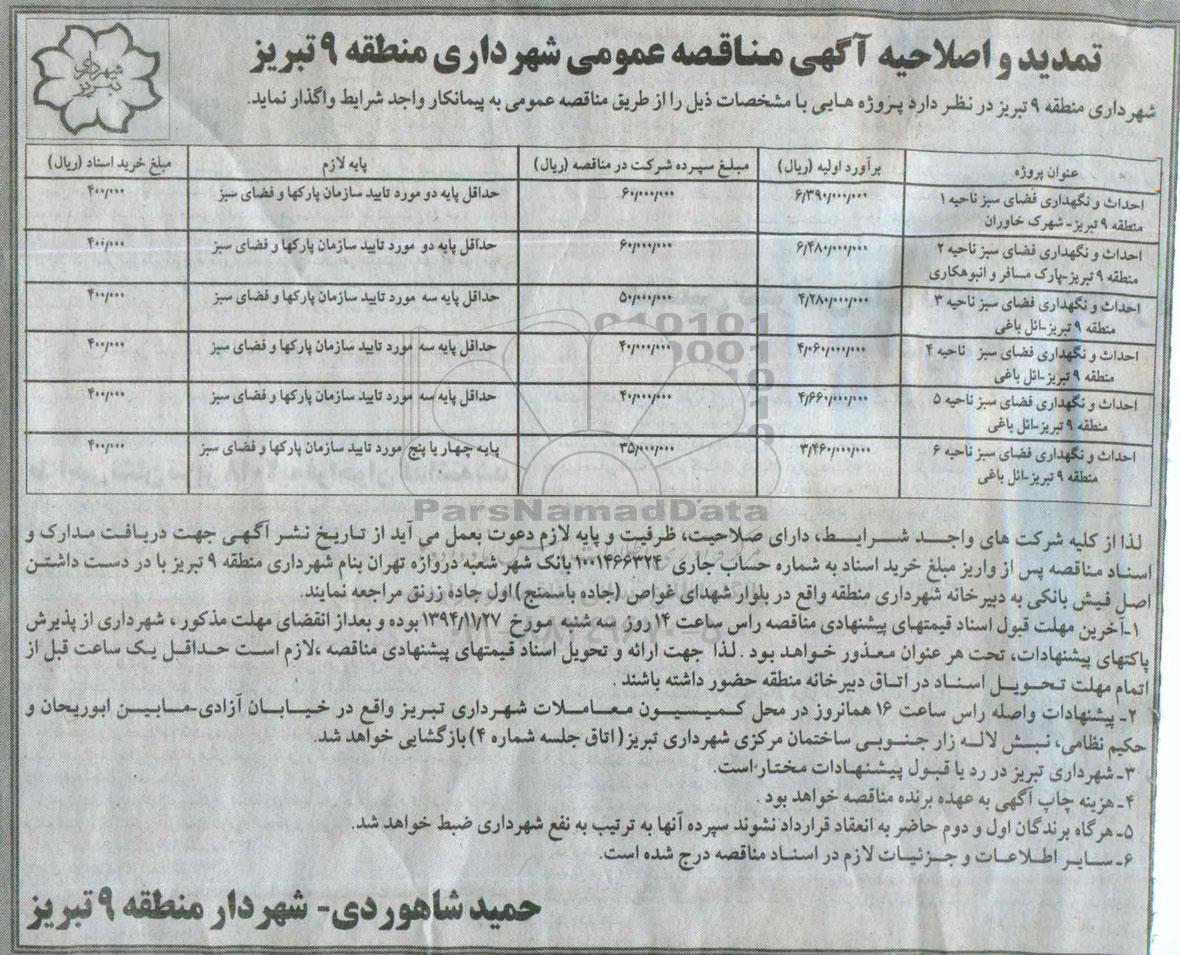 شهرداری
تبریز
تمدید و اصلاحیه آگهی مناقصه عمومی شهرداری منطقه ۹ تبریز
شهرداری منطقه ۹ تبریز در نظر دارد پروژه هایی با مشخصات ذیل را از طریق مناقصه عمومی به پیمانکار واجد شرایط واگذار نماید.
عنوان پروژه برآورد اولیه (ریال) مبلغ سپرده شرکت در مناقصه (ریال) پایه لازم مبلغ خرید اسناد (ریال)
احداث و نگهداری فضای سبز ناحیه ۱ ۶/۳۹۰/۰۰۰/۰۰۰ ۶۰/۰۰۰/۰۰۰ حداقل پایه دو مورد تایید سازمان پارکها و فضای سبز ۴۰۰/۰۰۰
منطقه ۹ تبریز- شهرک خاوران
احداث و نگهداری فضای سبز ناحیه ۲ ۶/۴۸۰/۰۰۰/۰۰۰ ۶۰/۰۰۰/۰۰۰ حداقل پایه دو مورد تایید سازمان پارکها و فضای سبز ۴۰۰/۰۰۰
منطقه ۹ تبریز-پارک مسافر و انبوهکاری
احداث و نگهداری فضای سبز ناحیه ۳ ۴/۲۸۰/۰۰۰/۰۰۰ ۵۰/۰۰۰/۰۰۰ حداقل پایه سه مورد تایید سازمان پارکها و فضای سبز ۴۰۰/۰۰۰
منطقه ۹ تبریز-ائل باغی
احداث و نگهداری فضای سبز ناحیه ۴ ۴/۰۶۰/۰۰۰/۰۰۰ ۴۰/۰۰۰/۰۰۰ حداقل پایه سه مورد تایید سازمان پارکها و فضای سبز ۴۰۰/۰۰۰
منطقه ۹ تبریز-ائل باغی
احداث و نگهداری فضای سبز ناحیه ۵ ۴/۶۶۰/۰۰۰/۰۰۰ ۴۰/۰۰۰/۰۰۰ حداقل پایه سه مورد تایید سازمان پارکها و فضای سبز ۴۰۰/۰۰۰
منطقه ۹ تبریز-ائل باغی
احداث و نگهداری فضای سبز ناحیه ۶ ۳/۴۶۰/۰۰۰/۰۰۰ ۳۵/۰۰۰/۰۰۰ پایه چهار یا پنج مورد تایید سازمان پارکها و فضای سبز ۴۰۰/۰۰۰
منطقه ۹ تبریز-ائل باغی
ParsNamadData
لذا از کلیه شرکت های واجد شرایط، دارای صلاحیت، ظرفیت و پایه لازم دعوت بعمل می آید از تاریخ نشر آگهی جهت دریافت مدارک و
اسناد مناقصه پس از واریز مبلغ خرید اسناد به شماره حساب جاری ۱۰۰۱۴۶۶۳۲۴ بانک شهر شعبه دروازه تهران بنام شهرداری منطقه ۹ تبریز با در دست داشتن
اصل فیش بانکی به دبیرخانه شهرداری منطقه واقع در بلوار شهدای غواص (جاده باسمنج) اول جاده زرنق مراجعه نمایند.
۱-آخرین مهلت قبول اسناد قیمتهای پیشنهادی مناقصه راس ساعت ۱۴ روز سه شنبه مورخ ۱۳۹۴/۱۱/۲۷ بوده و بعداز انقضای مهلت مذکور ، شهرداری از پذیرش
پاکتهای پیشنهادات، تحت هر عنوان معذور خواهد بود . لذا جهت ارائه و تحویل اسناد قیمتهای پیشنهادی مناقصه ،لازم است حداقل یک ساعت قبل از
اتمام مهلت تحویل اسناد در اتاق دبیرخانه منطقه حضور داشته باشند .
۲- پیشنهادات واصله راس ساعت ۱۶ همانروز در محل کمیسیون معاملات شهرداری تبریز واقع در خیابان آزادی-مابین ابوریحان و
حکیم نظامی، نبش لاله زار جنوبی ساختمان مرکزی شهرداری تبریز( اتاق جلسه شماره ۴) بازگشایی خواهد شد.
۳- شهرداری تبریز در رد یا قبول پیشنهادات مختار است.
۴- هزینه چاپ آگهی به عهده برنده مناقصه خواهد بود .
۵- هرگاه برندگان اول و دوم حاضر به انعقاد قرارداد نشوند سپرده آنها به ترتیب به نفع شهرداری ضبط خواهد شد.
۶- سایر اطلاعات و جزئیات لازم در اسناد مناقصه درج شده است.
حمید شاهوردی- شهردار منطقه ۹ تبریز